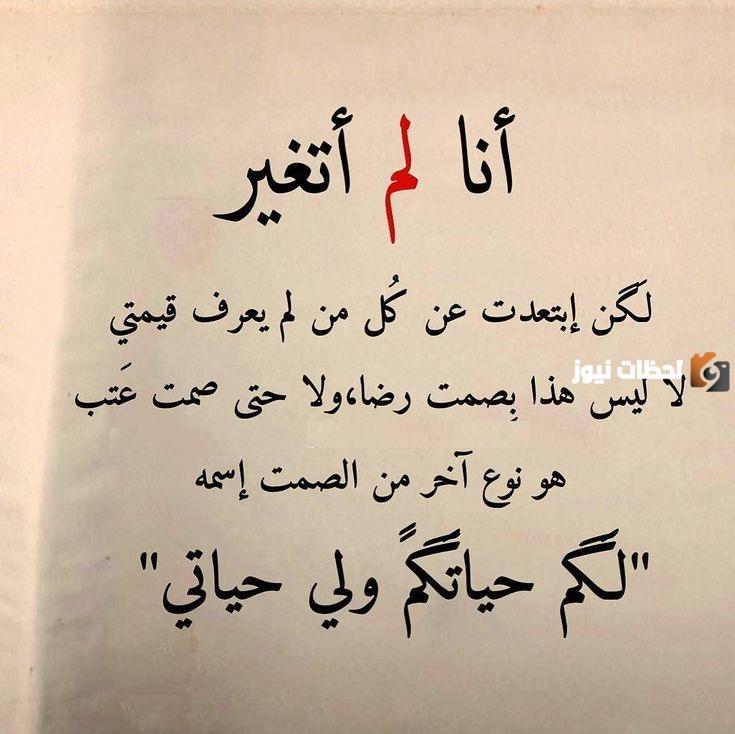 أنا لم أتغير
لَكن إبتعدت عن كُل من لم يعرف قيمتي
لحظات نيوز
لا ليس هذا بِصمت رضا،ولا حتى صمت عَتب
هو نوع آخر من الصمت إسمه
"لَكَم حياتَكَمً ولي حياتي"